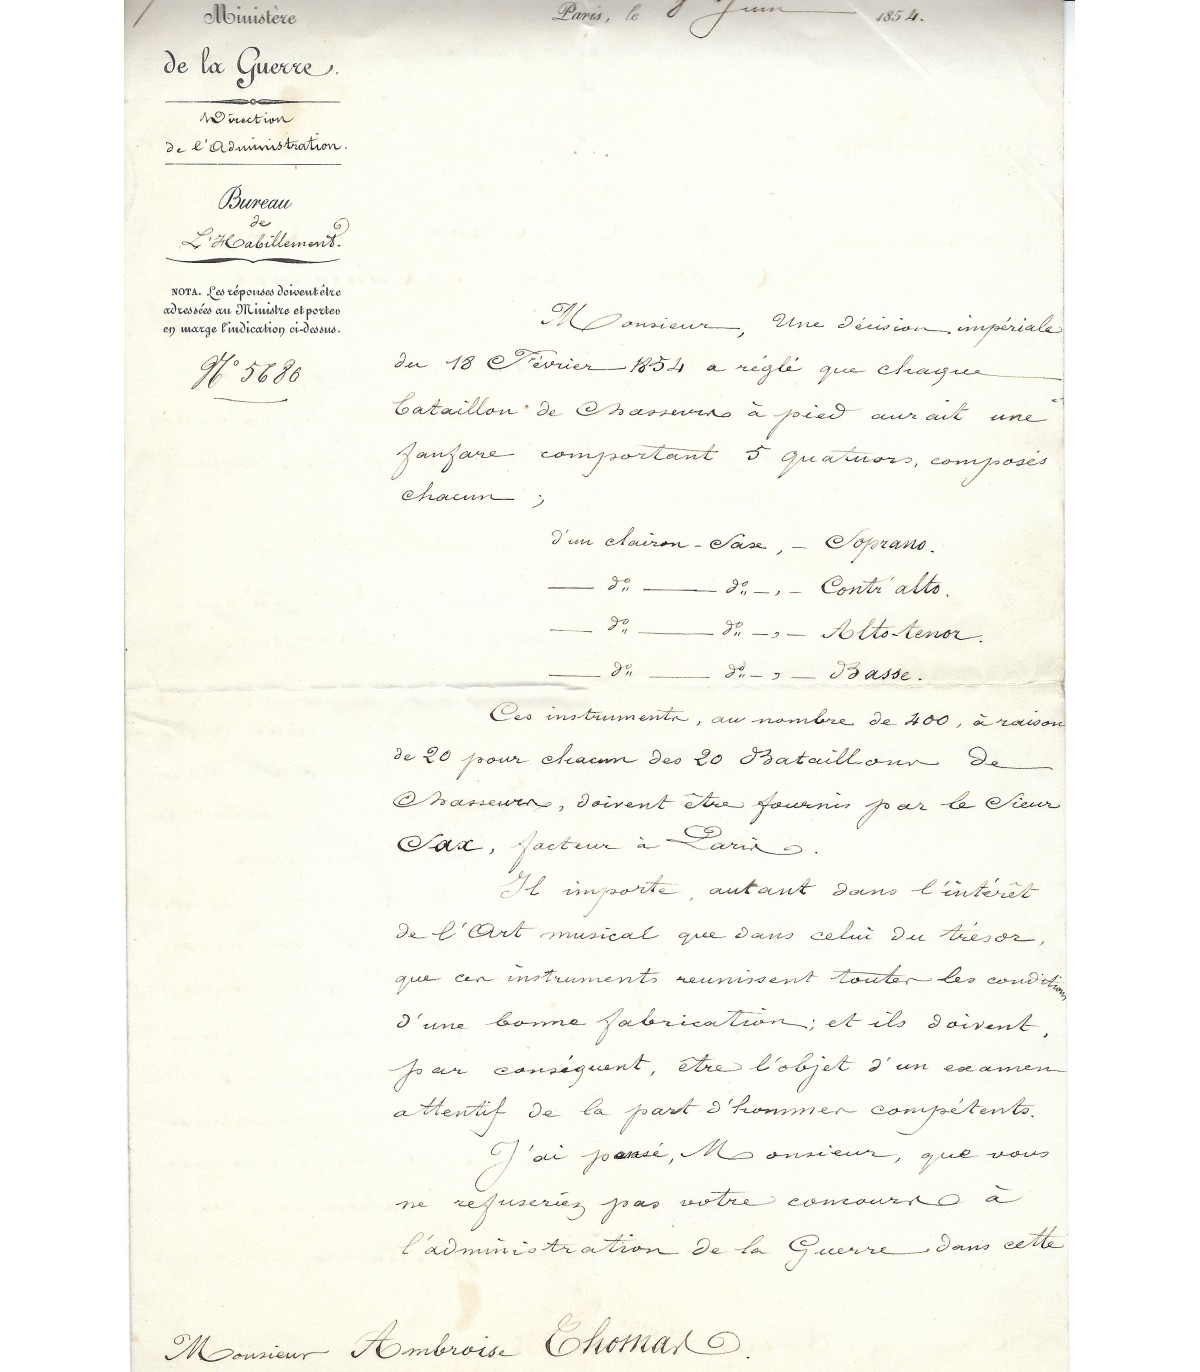 Ministère
Paris, le 8 Juin 1854.
de la Guerre.
Direction
de l'Administration.
Bureau
de
L'Habillement.
NOTA. Les réponses doivent être
adressées au Ministre et porter
en marge l'indication ci-dessus.
N° 5680
Monsieur, Une décision impériale
du 18 Février 1854 a réglé que chaque
bataillon de Chasseurs à pied aurait une
fanfare comportant 5 quatuors, composés
chacun ;
d'un clairon-Saxe, - Soprano.
— d° — d° -, - Contr'alto.
— d° — d° -, - Alto-tenor.
— d° — d° -, - Basse.
Ces instruments, au nombre de 400, à raison
de 20 pour chacun des 20 Bataillons de
Chasseurs, doivent être fournis par le Sieur
Sax, facteur à Paris.
Il importe, autant dans l'intérêt
de l'Art musical que dans celui du trésor,
que ces instruments reunissent toutes les conditions
d'une bonne fabrication; et ils doivent,
par conséquent, être l'objet d'un examen
attentif de la part d'hommes compétents.
J'ai pensé, Monsieur, que vous
ne refuseriez pas votre concours à
l'administration de la Guerre dans cette
Monsieur Ambroise Thomas.